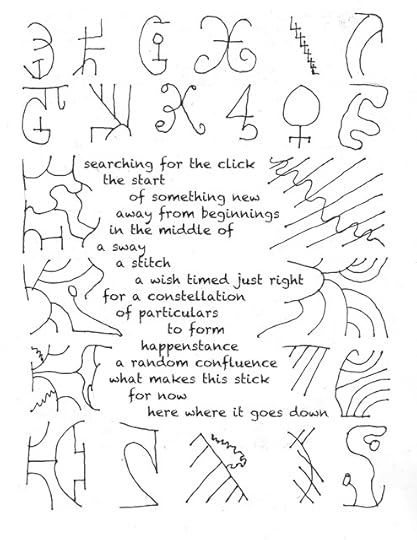 searching for the click
the start
of something new
away from beginnings
in the middle of
a sway
a stitch
a wish timed just right
for a constellation
of particulars
to form
happenstance
a random confluence
what makes this stick
for now
here where it goes down